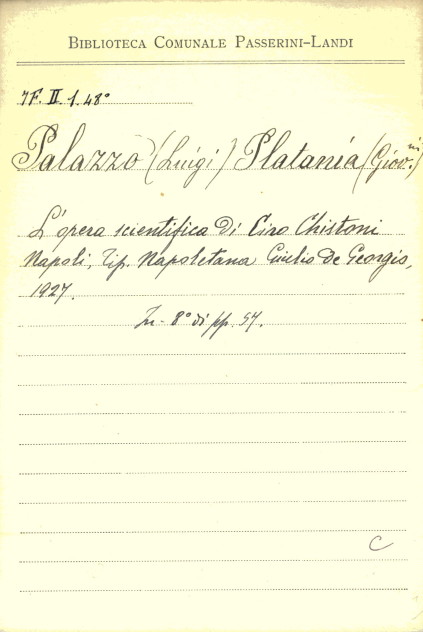 BIBLIOTECA COMUNALE PASSERINI-LANDI
7F. II. 1. 48°
Palazzo (Luigi) Platania (Giov.ni)
L'opera scientifica di Ciro Chistoni
Napoli, Tip. Napoletana Giulio De Georgio,
1927.
In-8° di pp. 57.
C